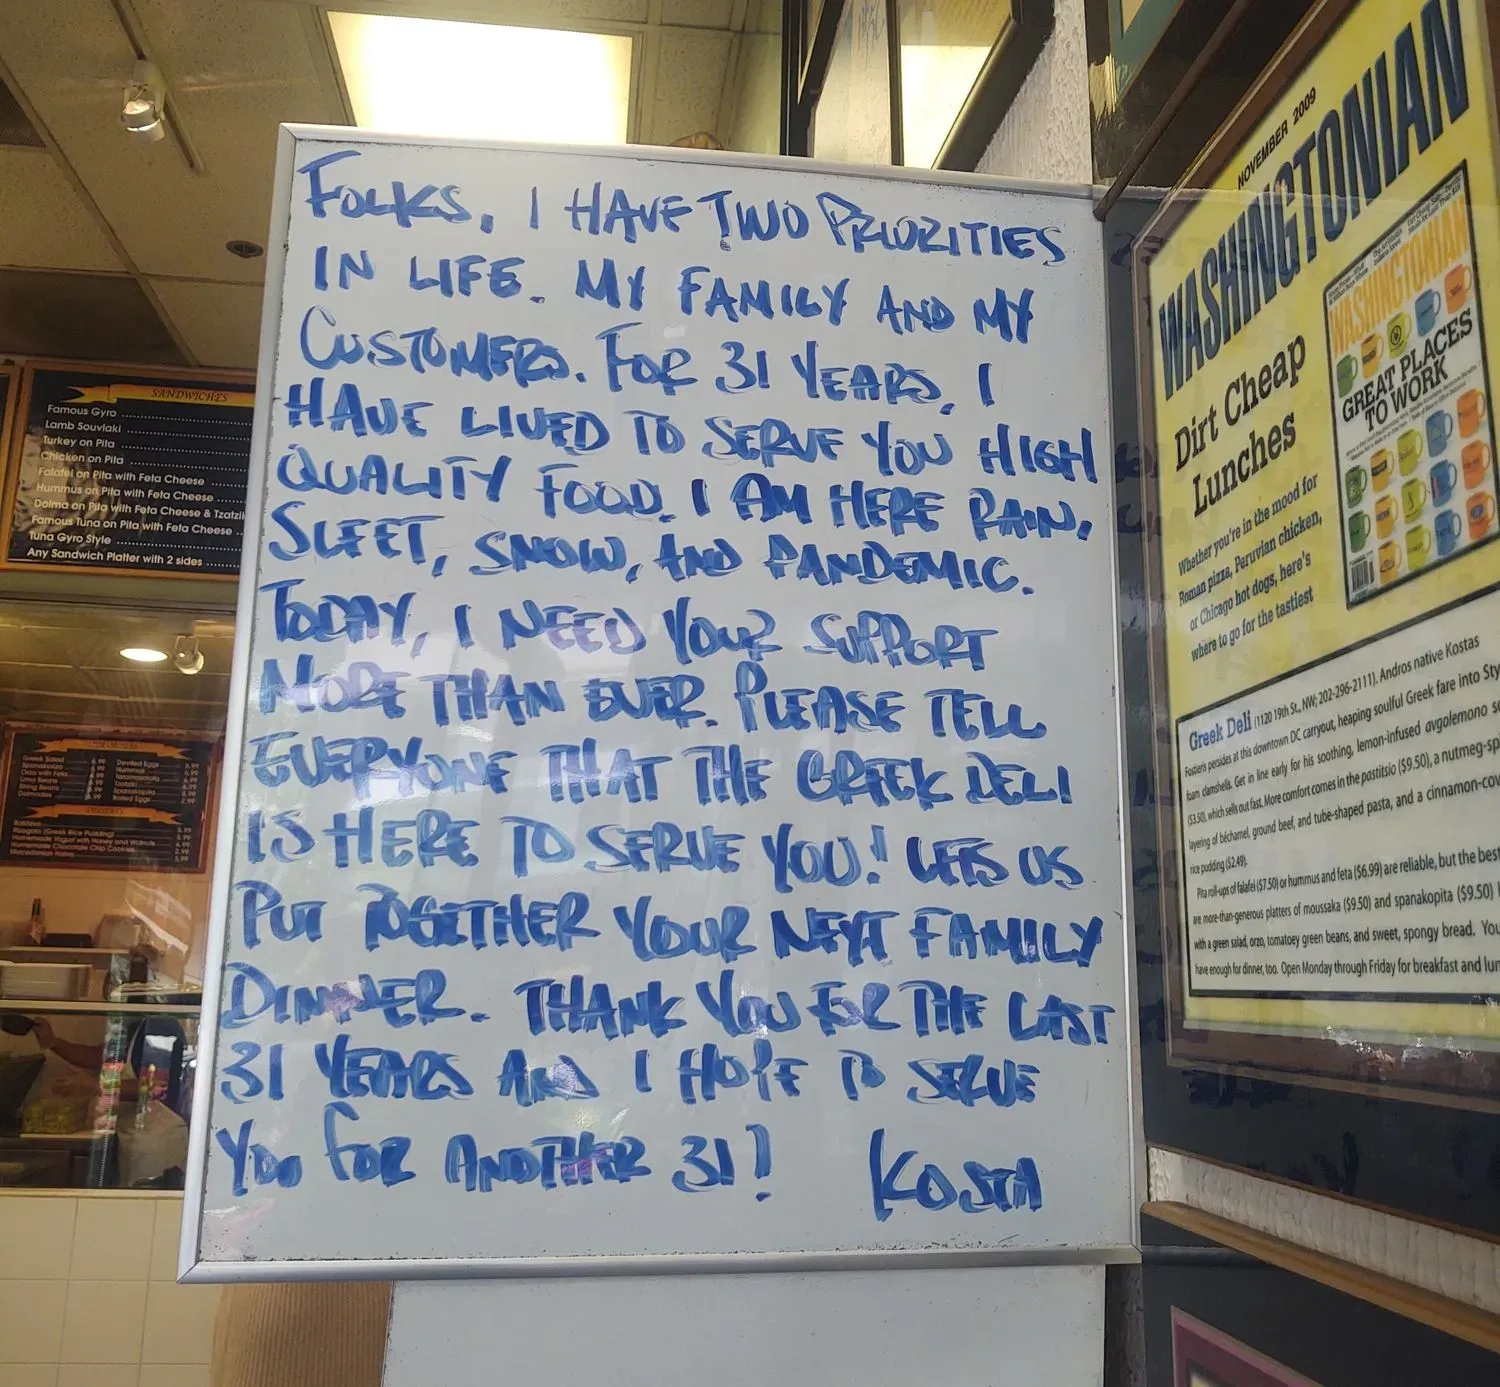 FOLKS, I HAVE TWO PRIORITIES
IN LIFE. MY FAMILY AND MY
CUSTOMERS. FOR 31 YEARS, I
HAVE LIVED TO SERVE YOU HIGH
QUALITY FOOD. I AM HERE RAIN,
SLEET, SNOW, AND PANDEMIC.
TODAY, I NEED YOUR SUPPORT
MORE THAN EVER. PLEASE TELL
EVERYONE THAT THE GREEK DELI
IS HERE TO SERVE YOU! LETS US
PUT TOGETHER YOUR NEXT FAMILY
DINNER. THANK YOU FOR THE LAST
31 YEARS AND I HOPE TO SERVE
YOU FOR ANOTHER 31!
KOSTA
SANDWICHES
Famous Gyro
Lamb Souvlaki
Turkey on Pita
Chicken on Pita
Falafel on Pita with Feta Cheese
Hummus on Pita with Feta Cheese
Dolma on Pita with Feta Cheese & Tzatzik
Famous Tuna on Pita with Feta Cheese
Tuna Gyro Style
Any Sandwich Platter with 2 sides
Greek Salad 6.99
Deviled Eggs
Hummus
Spanakopita
Baklava
Rizogalo (Greek Rice Pudding)
Homemade Yogurt with Honey and Walnuts
Homemade Chocolate Chip Cookies
NOVEMBER 2009
WASHINGTONIAN
Dirt Cheap
Lunches
Whether you're in the mood for
Roman pizza, Peruvian chicken,
or Chicago hot dogs, here's
where to go for the tastiest
WASHINGTONIAN
GREAT PLACES
TO WORK
Greek Deli (1120 19th St., NW; 202-296-2111). Andros native Kostas
Fostieris persides at this downtown DC carryout, heaping soulful Greek fare into Sty
foam clamshells. Get in line early for his soothing, lemon-infused avgolemono so
($3.50), which sells out fast. More comfort comes in the pastitsio ($9.50), a nutmeg-sp
layering of béchamel, ground beef, and tube-shaped pasta, and a cinnamon-cov
rice pudding ($2.49).
Pita roll-ups of falafel ($7.50) or hummus and feta ($6.99) are reliable, but the best
are more-than-generous platters of moussaka ($9.50) and spanakopita ($9.50)
with a green salad, orzo, tomatoey green beans, and sweet, spongy bread. You
have enough for dinner, too. Open Monday through Friday for breakfast and lun